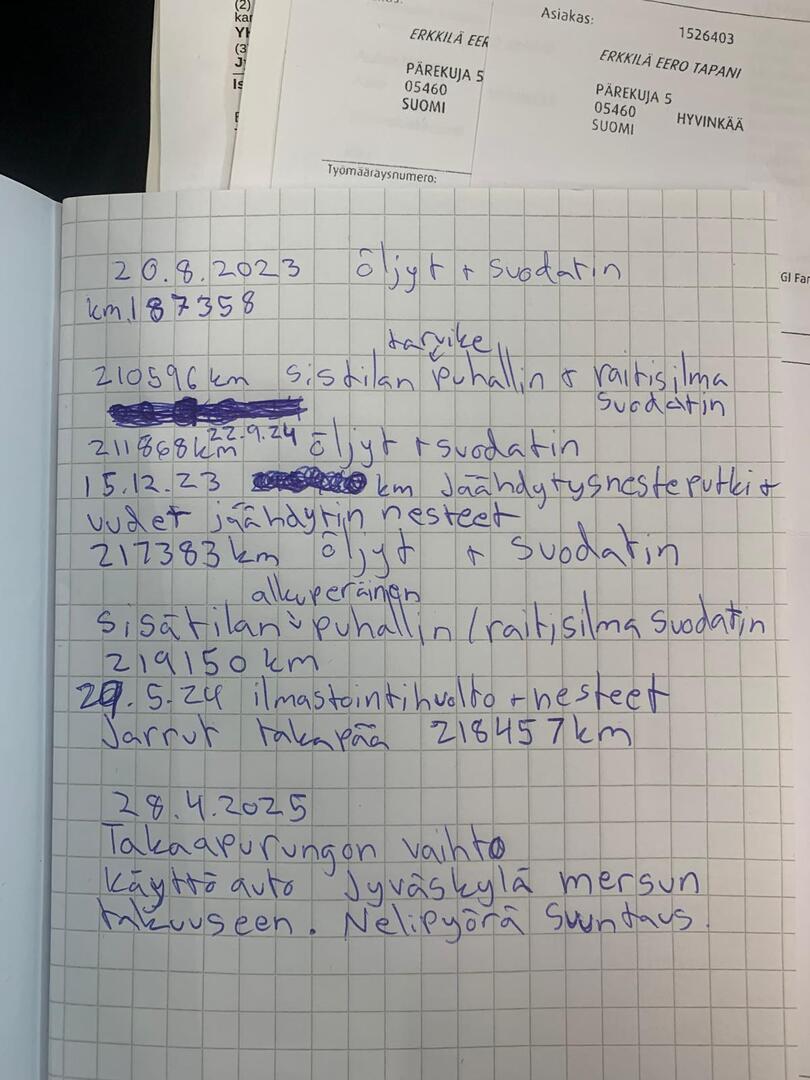 (2)
kar
(3)
Asiakas:
1526403
ERKKILÄ EER
PÄREKUJA 5
05460
SUOMI
Työmääräysnumero:
ERKKILÄ EERO TAPANI
PÄREKUJA 5
05460 HYVINKÄÄ
SUOMI
20.8.2023 öljyt + suodatin
km.187358
tarvike
210596 km sistilan puhallin + raitisilma
suodatin
22.9.24
211868km öljyt + suodatin
15.12.23 km Jäähdytysnesteputki +
uudet jäähdytin nesteet
217383 km öljyt + suodatin
alkuperäinen
Sisätilan puhallin / raitisilma suodatin
219150 km
29.5.24 ilmastointihuolto + nesteet
Jarrut takapää 218457km
28.4.2025
Takaapurungon vaihto
Käyttö auto Jyväskylä mersun
takuuseen. Nelipyörä Suuntaus.